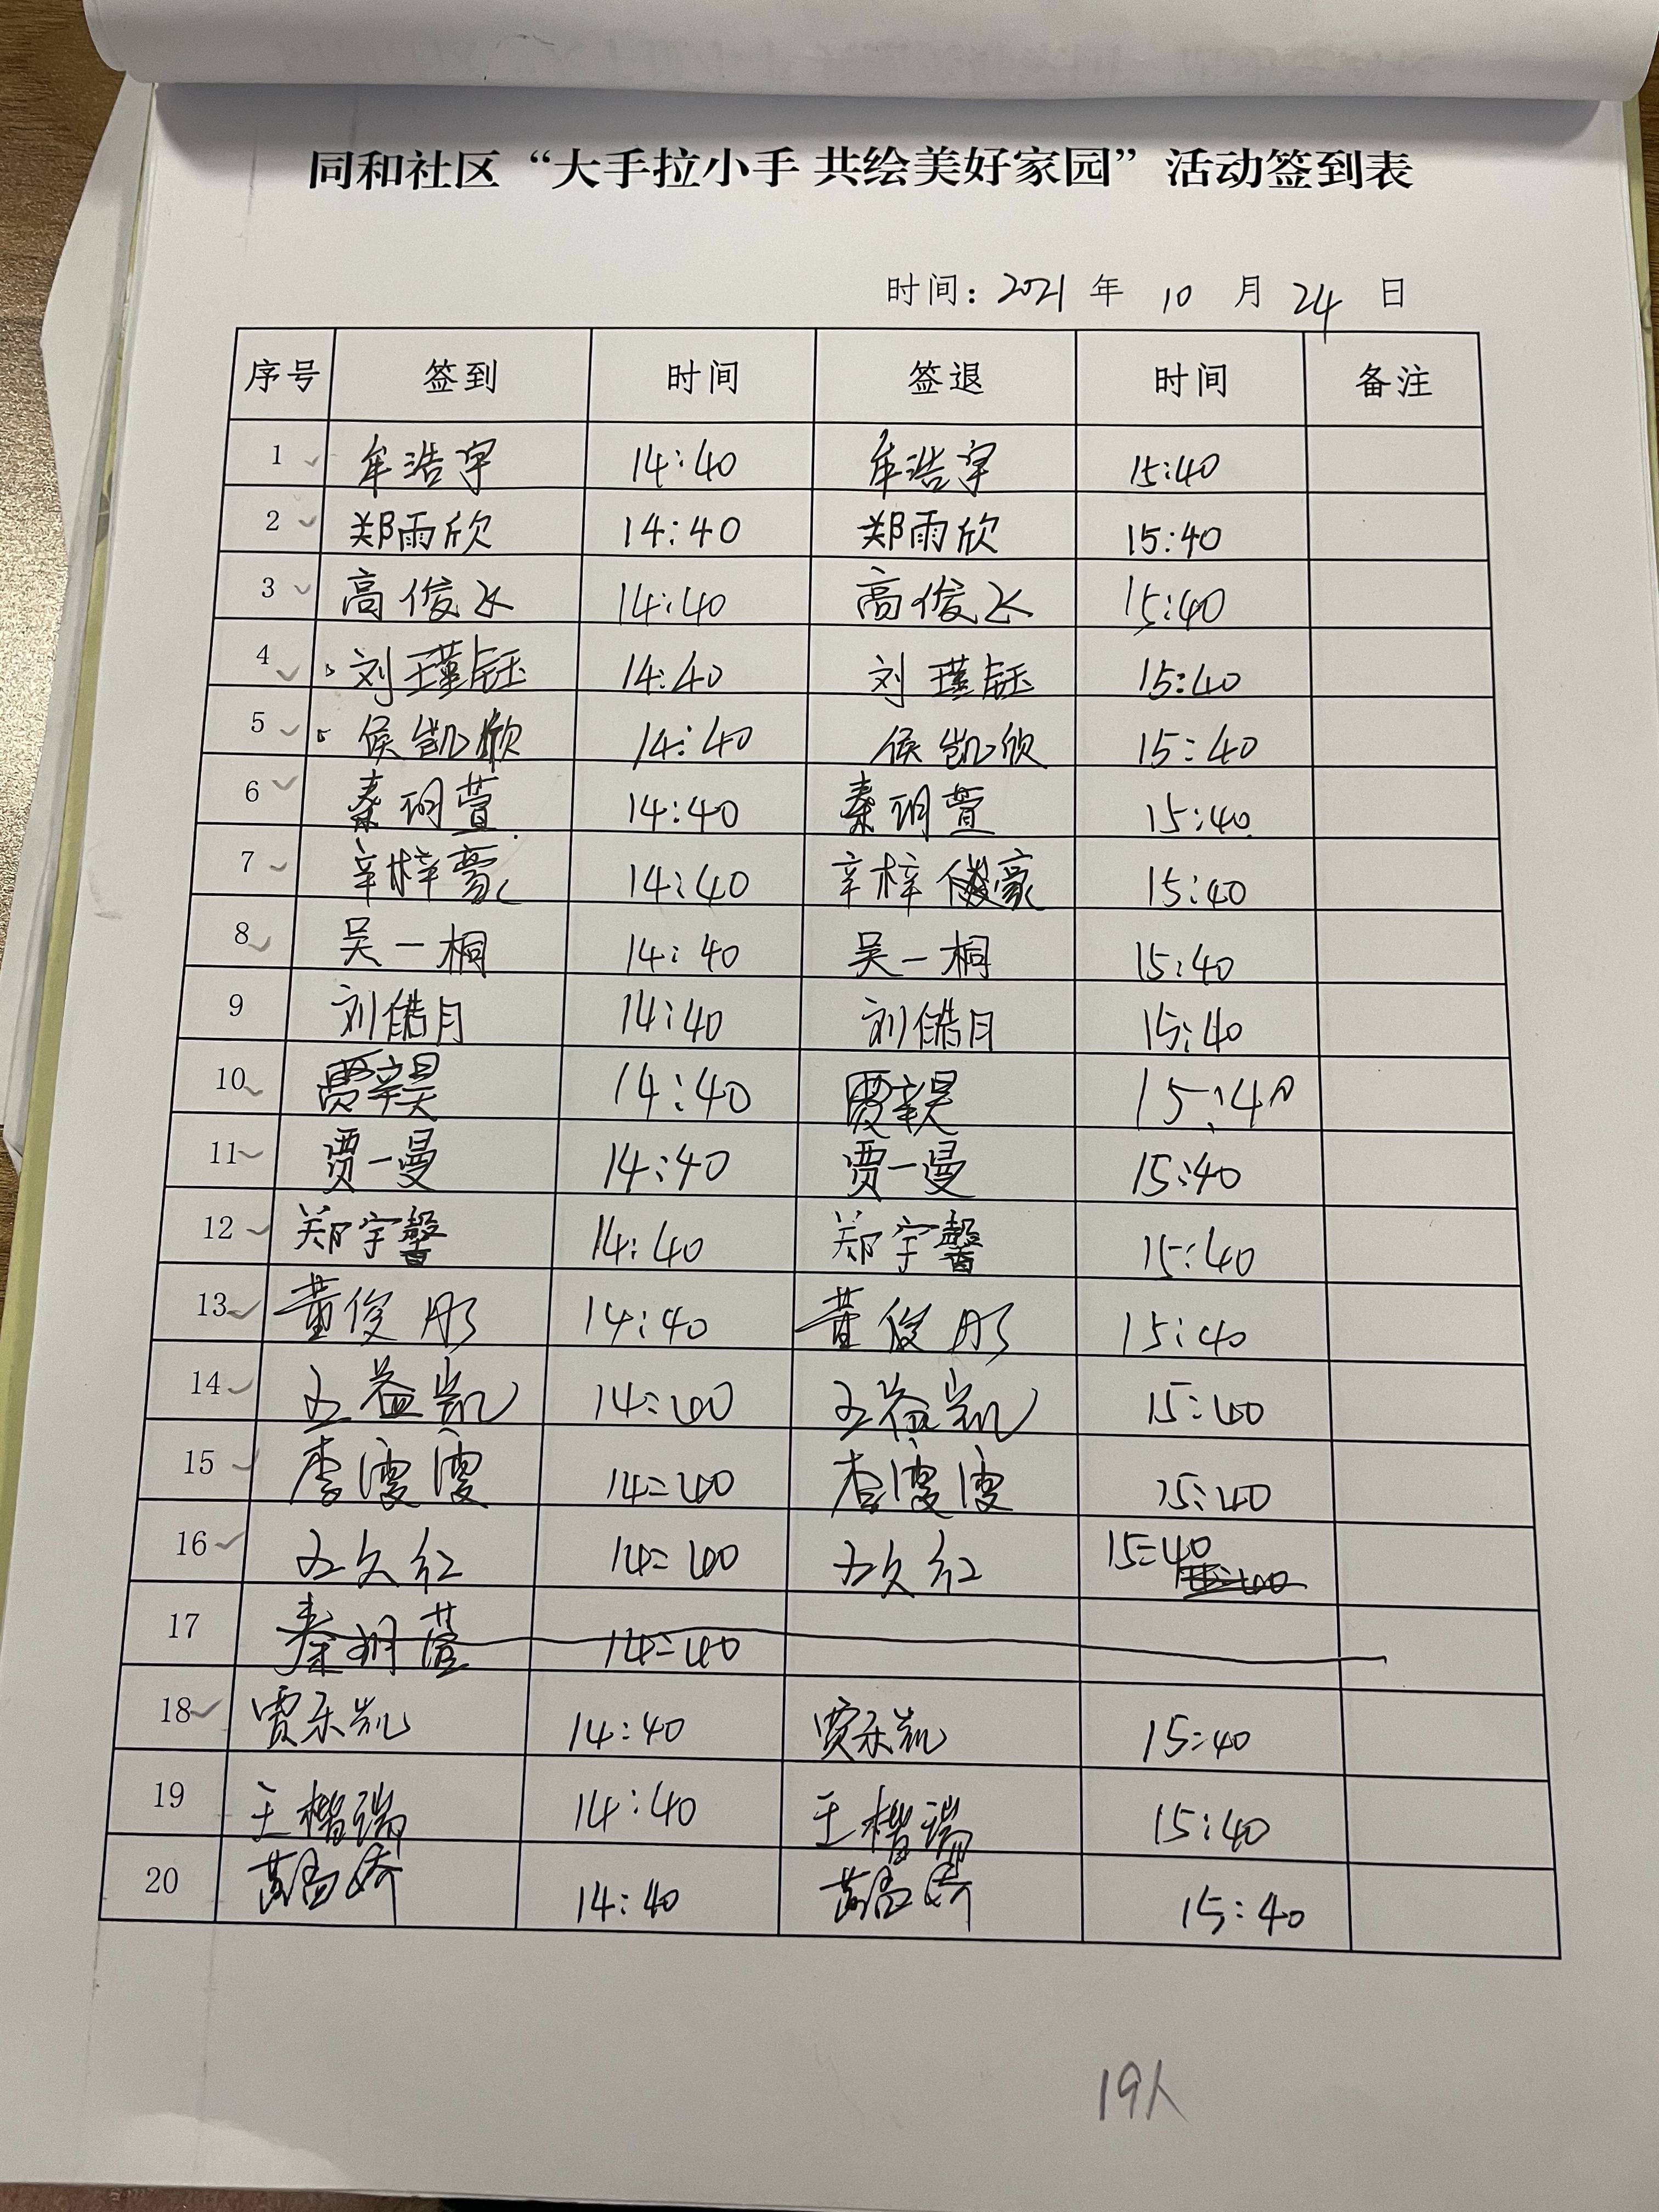 同和社区“大手拉小手 共绘美好家园”活动签到表
时间：2021 年 10 月 24 日
序号 签到 时间 签退 时间 备注
1 牟浩宇 14:40 牟浩宇 15:40
2 郑雨欣 14:40 郑雨欣 15:40
3 高俊飞 14:40 高俊飞 15:40
4 刘瑾钰 14:40 刘瑾钰 15:40
5 侯凯欣 14:40 侯凯欣 15:40
6 秦玥萱 14:40 秦玥萱 15:40
7 辛梓豪 14:40 辛梓豪 15:40
8 吴一桐 14:40 吴一桐 15:40
9 14:40 15:40
10 贾辛昊 14:40 贾辛昊 15:40
11 贾一曼 14:40 贾一曼 15:40
12 郑宇馨 14:40 郑宇馨 15:40
13 董俊彤 14:40 董俊彤 15:40
14 王益凯 14:40 王益凯 15:40
15 14:40 15:40
16 王久红 14:40 王久红 15:40
17 秦玥萱 14:40
18 贾乐凯 14:40 贾乐凯 15:40
19 王楷瑞 14:40 王楷瑞 15:40
20 14:40 15:40
19人